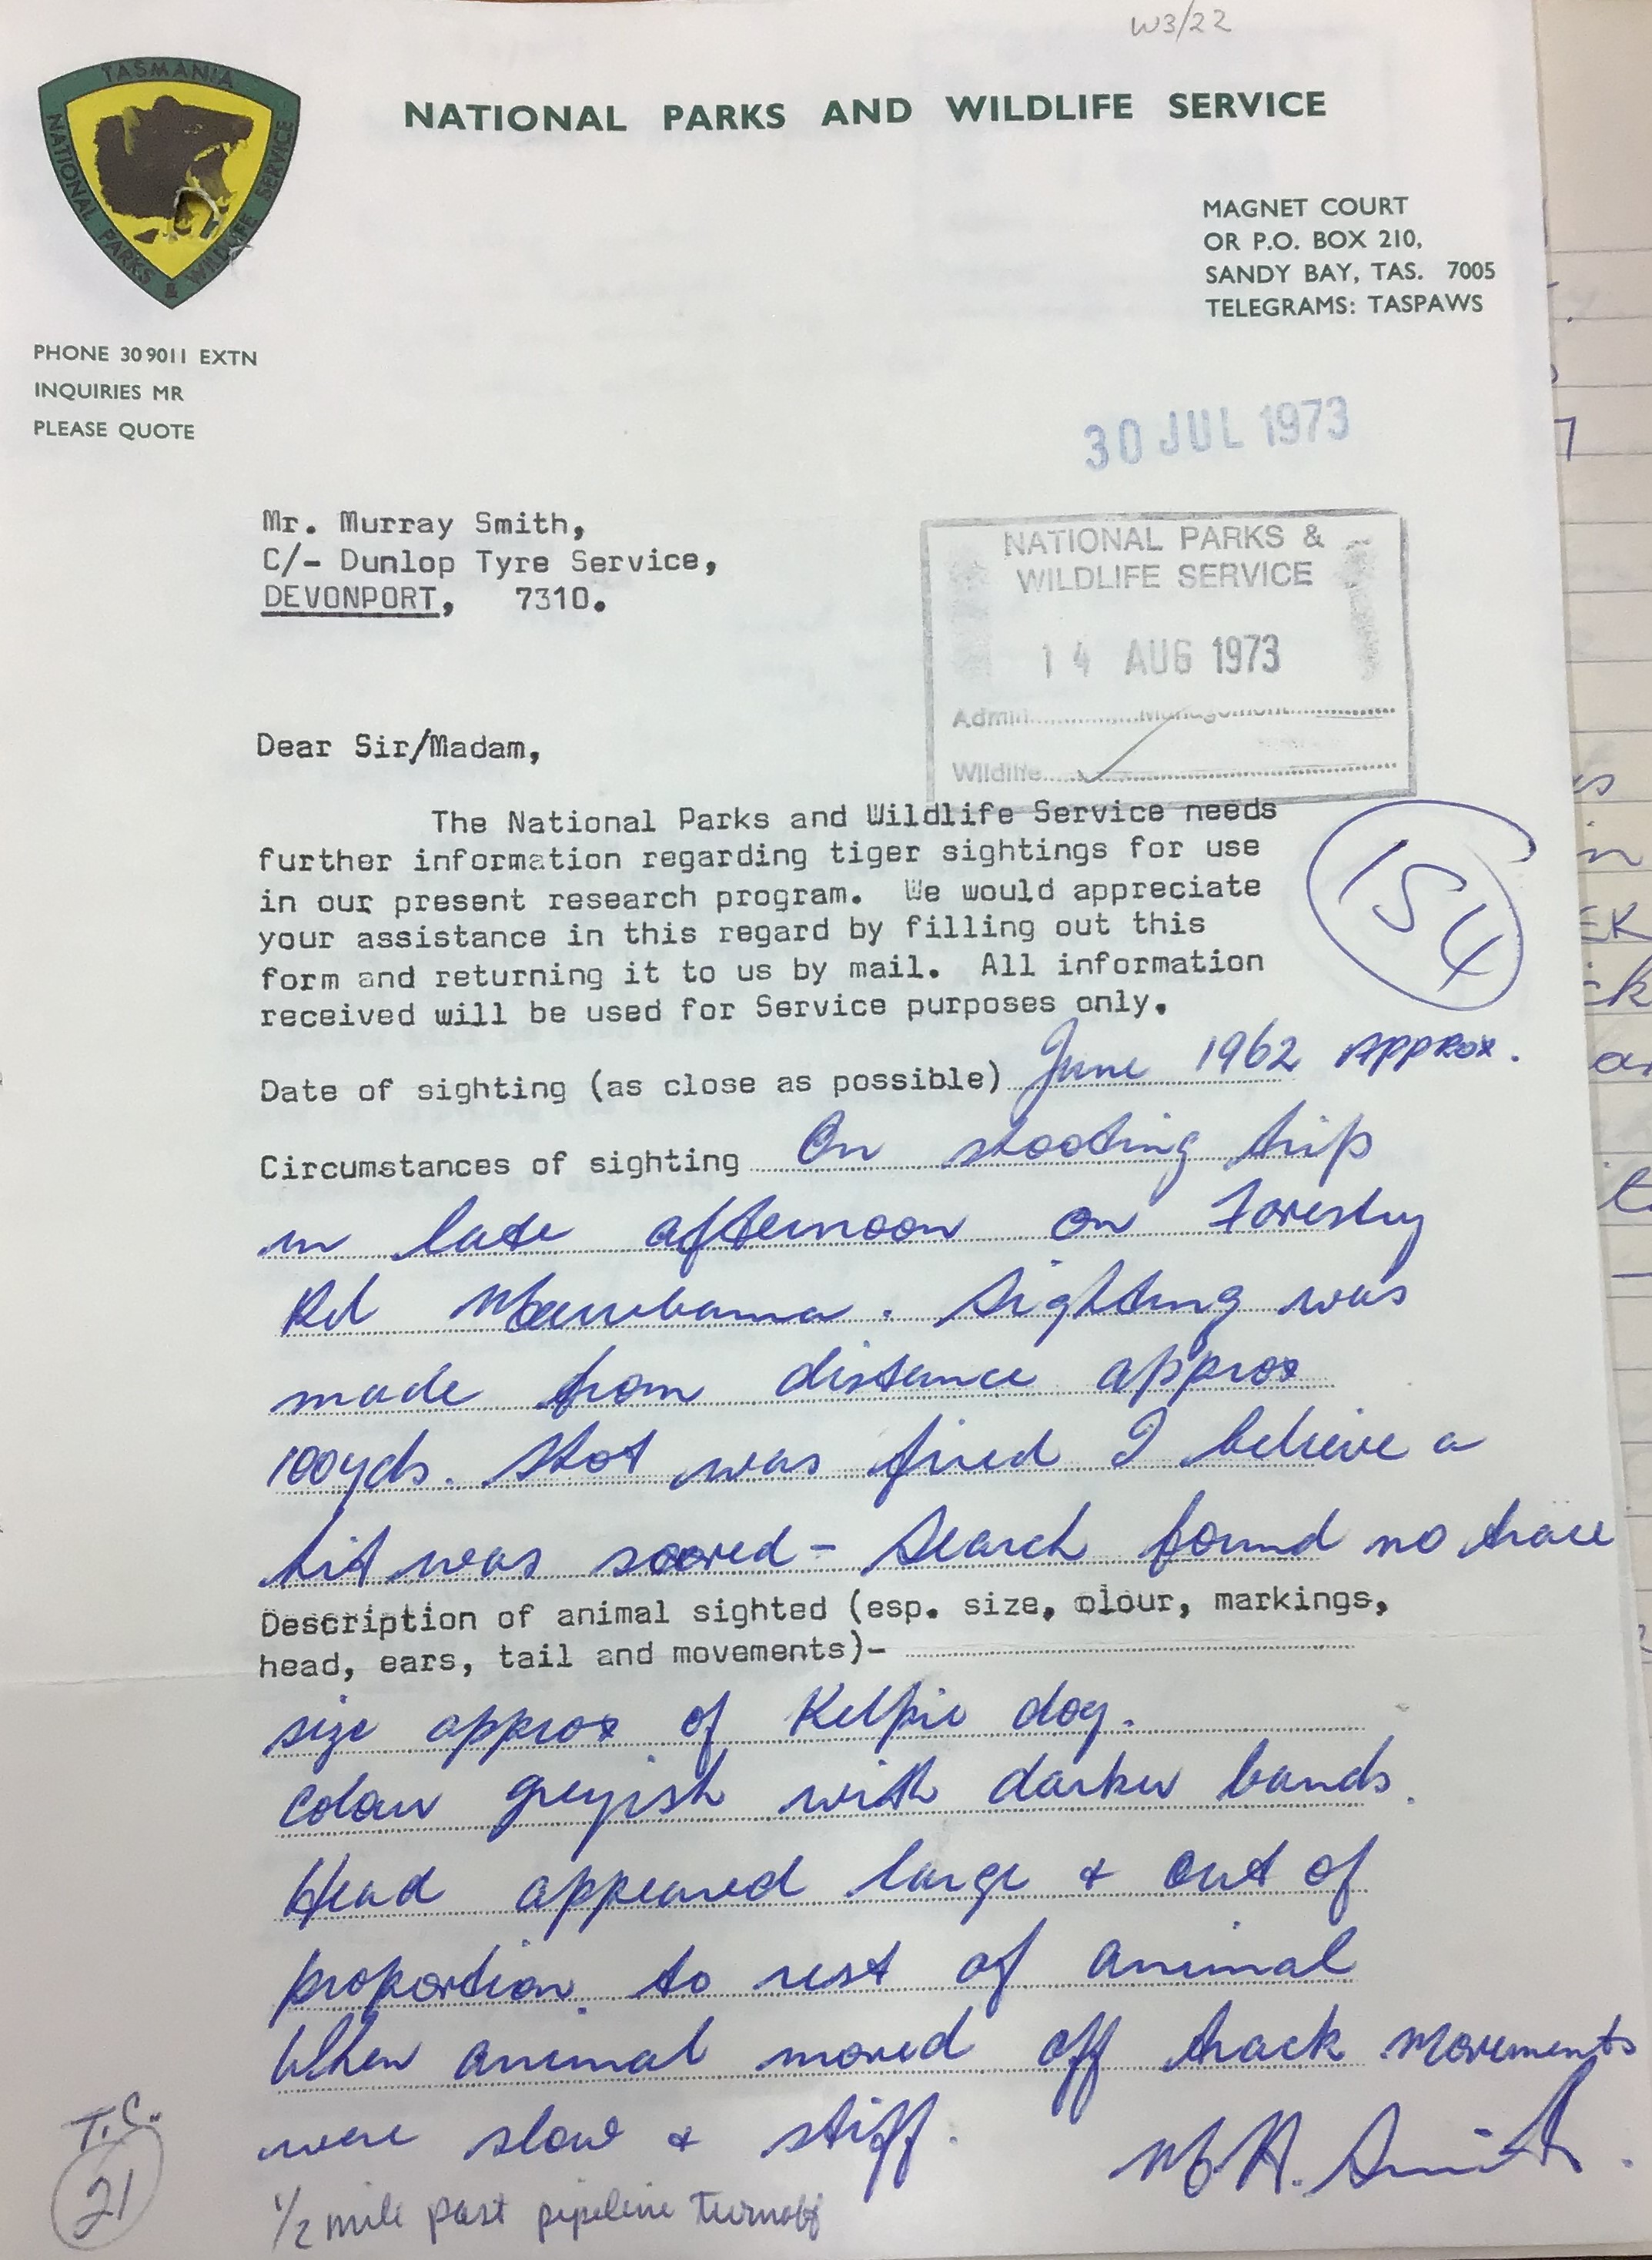 W3/22
TASMANIA
NATIONAL PARKS & WILDLIFE SERVICE
NATIONAL PARKS AND WILDLIFE SERVICE
MAGNET COURT
OR P.O. BOX 210,
SANDY BAY, TAS. 7005
TELEGRAMS: TASPAWS
PHONE 30 9011 EXTN
INQUIRIES MR
PLEASE QUOTE
30 JUL 1973
Mr. Murray Smith,
C/- Dunlop Tyre Service,
DEVONPORT, 7310.
NATIONAL PARKS &
WILDLIFE SERVICE
14 AUG 1973
Admin..............Management..............
Wildlife..............
Dear Sir/Madam,
The National Parks and Wildlife Service needs
further information regarding tiger sightings for use
in our present research program. We would appreciate
your assistance in this regard by filling out this
form and returning it to us by mail. All information
received will be used for Service purposes only.
154
Date of sighting (as close as possible) June 1962 Approx.
Circumstances of sighting On shooting trip
in late afternoon on Forestry
Rd . Sighting was
made from distance approx
100yds. Shot was fired I believe a
hit was scored - Search found no trace
Description of animal sighted (esp. size, olour, markings,
head, ears, tail and movements)-
size approx of Kelpie dog.
Colour greyish with darker bands.
Head appeared large & out of
proportion to rest of animal
When animal moved off track movements
were slow & stiff.
M H. Smith.
T.S.
21
1/2 mile past pipeline turnoff